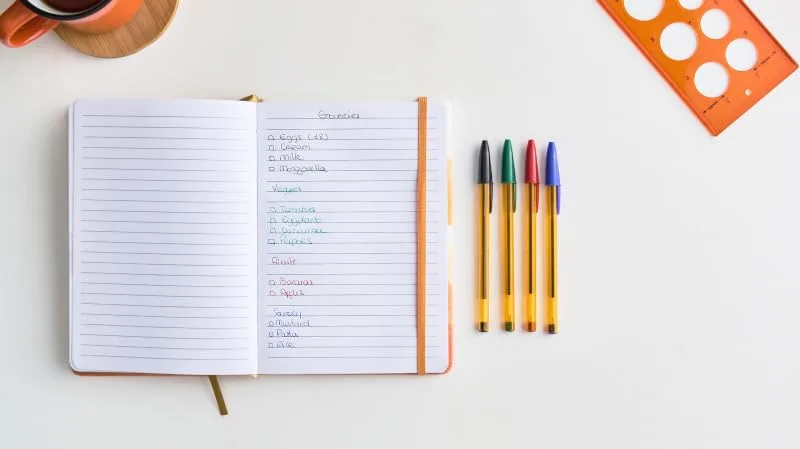 Groceries
□ Eggs (12)
□ Cream
□ Milk
□ Mozzarella
Veggies
□ Tomatoes
□ Eggplant
□ Cucumber
□ Peppers
Fruits
□ Bananas
□ Apples
Savory
□ Mustard
□ Pasta
□ Rice